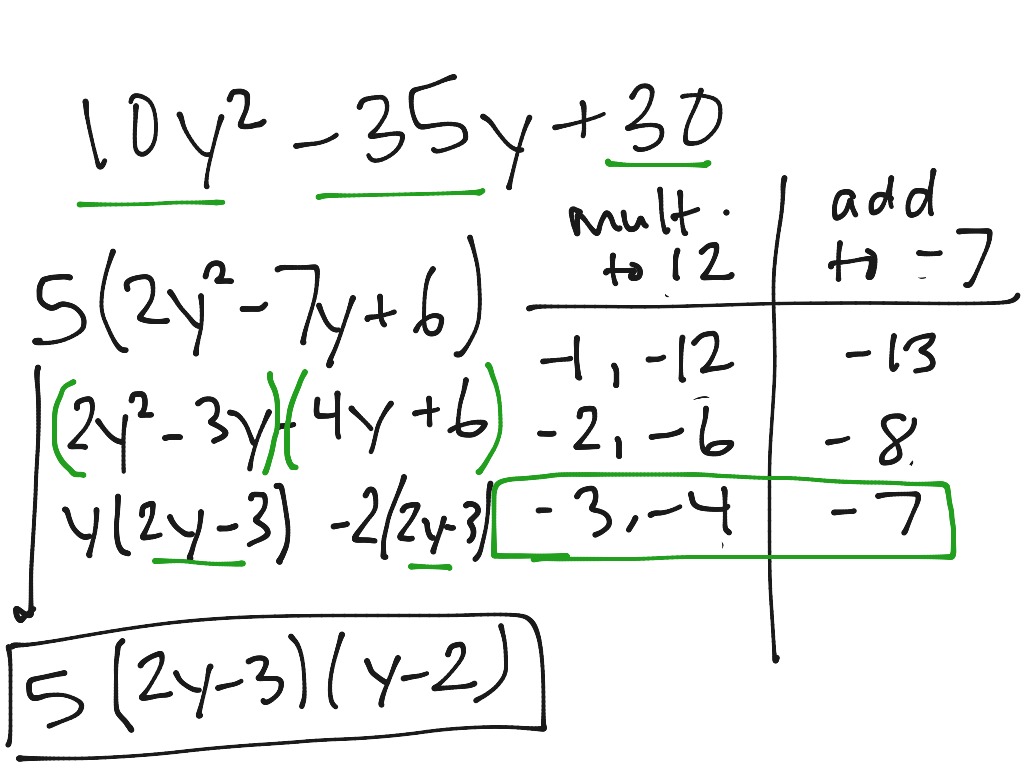 10y² - 35y + 30
5(2y² - 7y + 6)
(2y² - 3y) - (4y + 6)
y(2y - 3) -2(2y - 3)
5(2y - 3)(y - 2)
mult. to 12 | add to -7
-1, -12 | -13
-2, -6 | -8
-3, -4 | -7